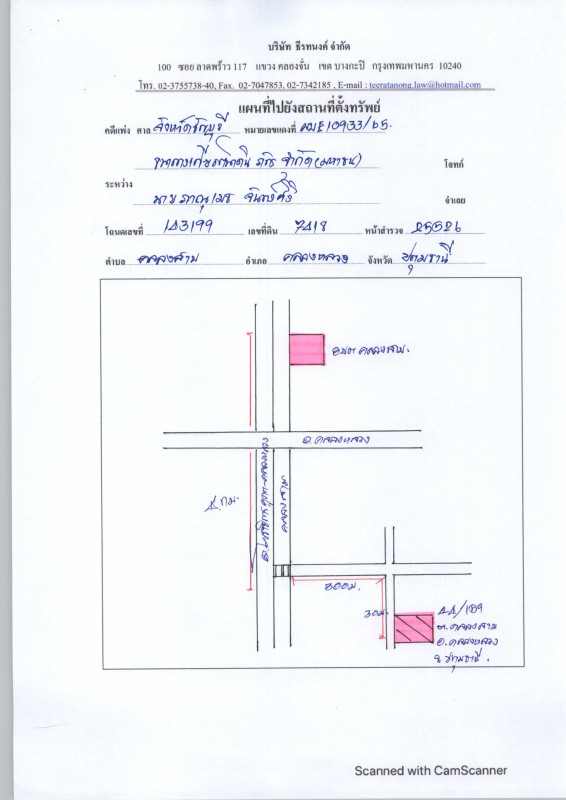 บริษัท ธีรทนงค์ จำกัด
100 ซอย ลาดพร้าว 117 แขวง คลองจั่น เขต บางกะปิ กรุงเทพมหานคร 10240
โทร. 02-3755738-40, Fax. 02-7047853, 02-7342185 , E-mail : teeratanong.law@hotmail.com
แผนที่ไปยังสถานที่ตั้งทรัพย์
คดีแพ่ง ศาล จังหวัดธัญบุรี หมายเลขแดงที่ ผบE10933/65.
ธนาคารเกียรตินาคิน ภัทร จำกัด (มหาชน) โจทก์
ระหว่าง
นาย จำเลย
โฉนดเลขที่ 143199 เลขที่ดิน 7418 หน้าสำรวจ 25526
ตำบล คลองสาม อำเภอ คลองหลวง จังหวัด ปทุมธานี
อบต คลองสาม.
ถ.คลองหลวง
คลองสาม
4 กม.
800ม.
30ม.
44/109
ต.คลองสาม
อ.คลองหลวง
จ.ปทุมธานี.
Scanned with CamScanner